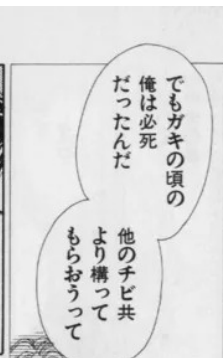 でもガキの頃の
俺は必死
だったんだ
他のチビ共
より構って
もらおうって